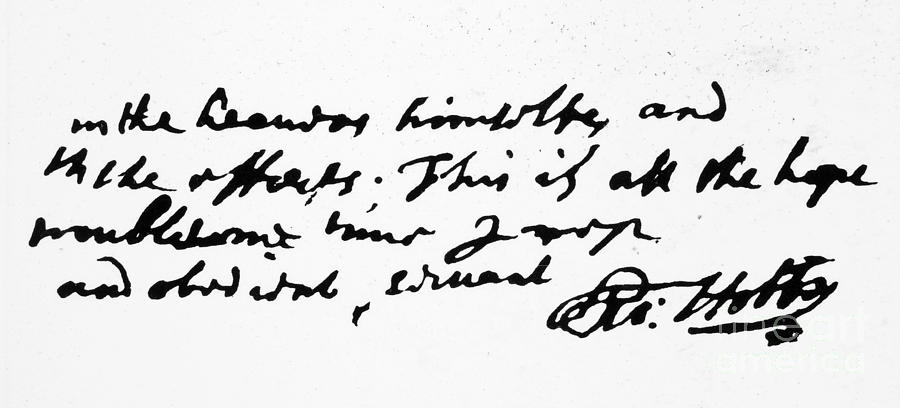 in the heavens themselves, and
in the effects. This is all the hope
troublesome time I
and obedient servant
Tho: Hobbes
fine art
america